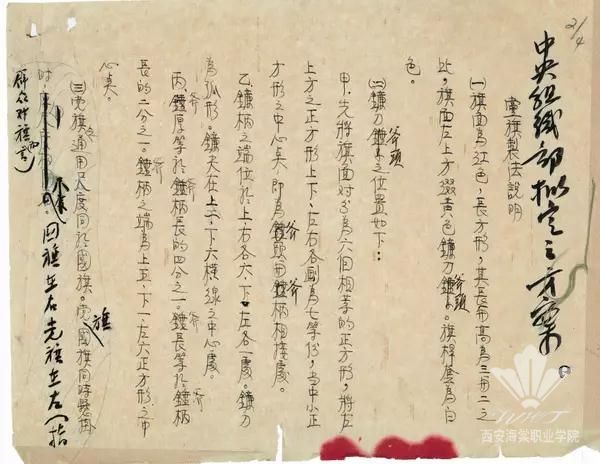 2/4
中央组织部拟定之方案
党旗製法說明
(一)旗面為紅色,長方形,其長与高為三与二之
比,旗面左上方綴黃色鐮刀斧頭。旗桿套為白
色。
(二)鐮刀斧頭之位置如下:
甲.先將旗面对分為六個相等的正方形,將左
上方之正方形上下、左右各劃為七等份,当中小正
方形之中心奌,即為斧頭与斧柄相接處。
乙.鐮柄之端位於上、右各六,下、左各一處。鐮刀
為弧形。鐮尖在上二、下六橫線之中心處。
丙.斧厚等於斧柄長的四分之一。斧長等於斧柄
長的二分之一。斧柄之端為上五、下一、左六正方形之中
心奌。
(三)党旗通用尺度同於國旗。党旗國旗同時懸掛
時,國旗在右党旗在左(指
群众对旗而言)
西安海棠职业学院